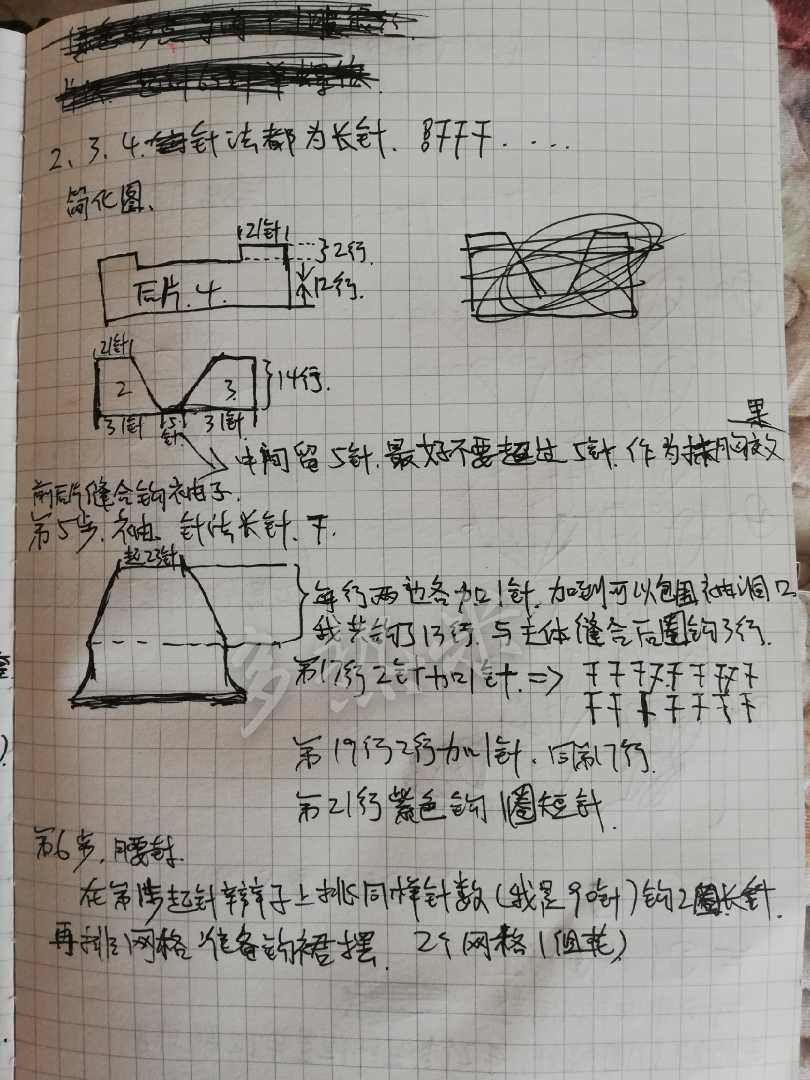 2、3、4.针法都为长针.
简化图、
21针
}2行.
后片.4.
12行.
21针
2
3
}14行.
31针
5针
31针
中间留5针.最好不要超过5针.作为抹胸效果
前后片缝合钩袖子.
第5步、袖、针法长针、
起23针
每行两边各加1针.加到可以包围袖洞口
我共钩了13行.与主体缝合后圈钩3行.
第17行2针加1针. =>
第19行2行加1针.同第17行.
第21行紫色钩1圈短针.
第6步.腰封.
在第1步起针辫子上挑同样针数(我是90针)钩2圈长针.
再排网格准备钩裙摆. 2个网格1组花)